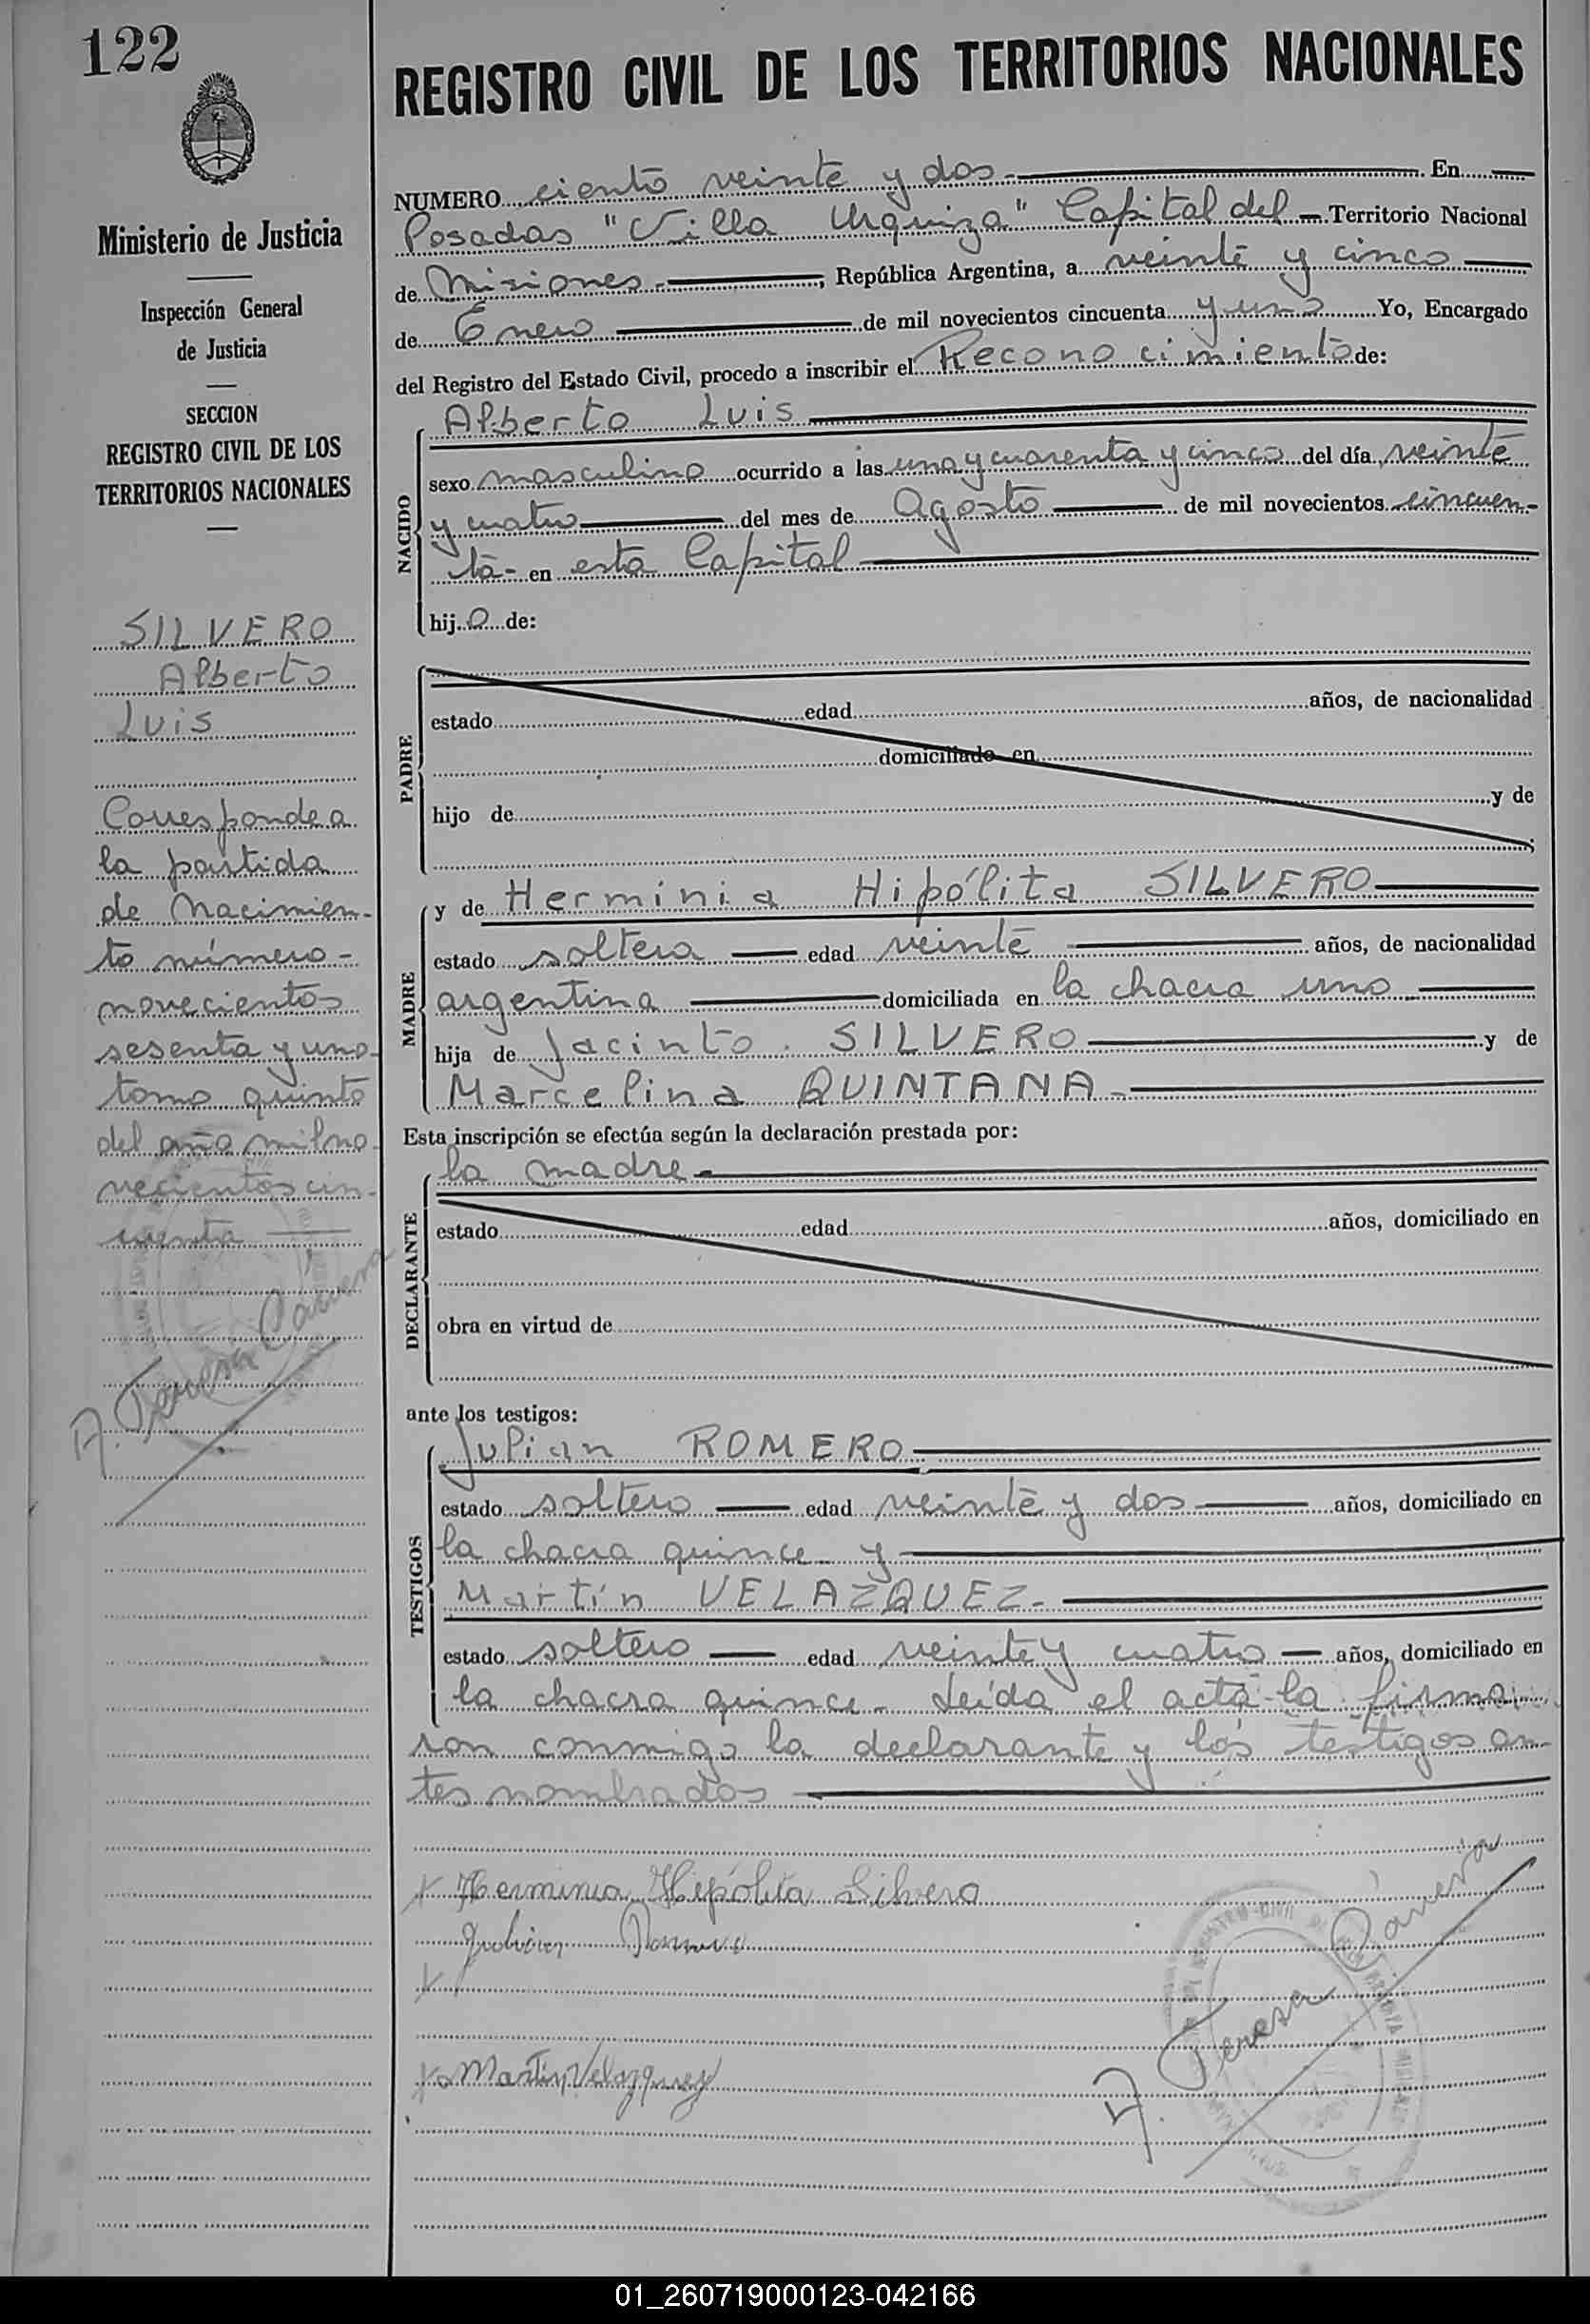 122
Ministerio de Justicia
Inspección General
de Justicia
SECCION
REGISTRO CIVIL DE LOS
TERRITORIOS NACIONALES
SILVERO
Alberto
Luis
Corresponde a
la partida
de Nacimien-
to número -
novecientos
sesenta y uno
tomo quinto
del año mil no
vecientos cin-
cuenta
REGISTRO CIVIL DE LOS TERRITORIOS NACIONALES
NUMERO ciento veinte y dos - En
Posadas "Villa Urquiza" Capital del Territorio Nacional
de Misiones -, República Argentina, a veinte y cinco
de Enero de mil novecientos cincuenta y uno Yo, Encargado
del Registro del Estado Civil, procedo a inscribir el Reconocimiento de:
NACIDO
Alberto Luis
sexo masculino ocurrido a las una y cuarenta y cinco del día veinte
y cuatro del mes de Agosto de mil novecientos cincuen-
ta - en esta Capital
hijo de:
PADRE
estado edad años, de nacionalidad
domiciliado en
hijo de y de
MADRE
y de Herminia Hipólita SILVERO
estado soltera edad veinte años, de nacionalidad
argentina domiciliada en la chacra uno
hija de Jacinto SILVERO y de
Marcelina QUINTANA -
Esta inscripción se efectúa según la declaración prestada por:
la madre -
DECLARANTE
estado edad años, domiciliado en
obra en virtud de
ante los testigos:
TESTIGOS
Julian ROMERO
estado soltero edad veinte y dos años, domiciliado en
la chacra quince y
Martín VELAZQUEZ -
estado soltero edad veinte y cuatro años, domiciliado en
la chacra quince - Leída el acta la firma
ron conmigo la declarante y los testigos an-
tes nombrados
Herminia Hipólita Silvero
Martin Velazquez
A. Teresa
01_260719000123-042166